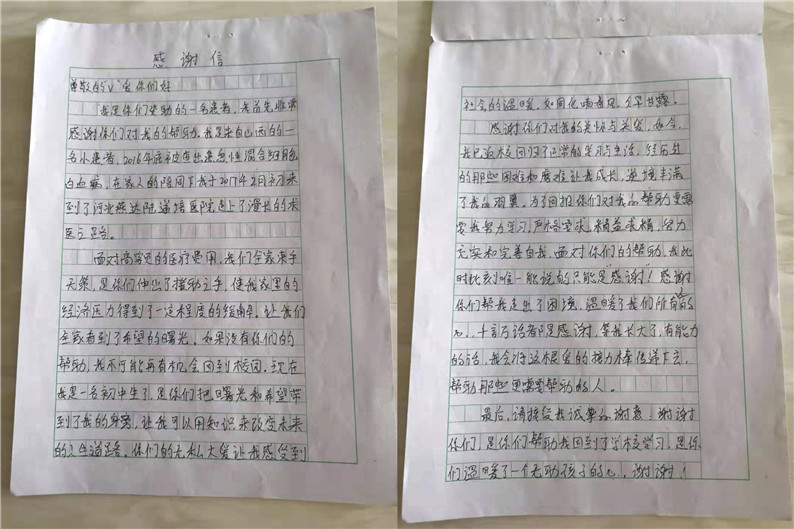 感谢信
尊敬的V爱你们好
我是你们帮助的一名患者，我首先非常
感谢你们对我的帮助，我是来自山西的一
名小患者，2016年底被查出患急性混合细胞
白血病，在家人的陪同下我于2017年2月初来
到了河北燕达陆道培医院走上了漫长的求
医之路。
面对高昂的医疗费用，我们全家束手
无策，是你们伸出了援助之手，使我家里的
经济压力得到了一定程度的缓解，让我们
全家看到了希望的曙光。如果没有你们的
帮助，我不可能再有机会回到校园，现在
我是一名初中生了，是你们把曙光和希望带
到了我的身旁，让我可以用知识来改变未来
的人生道路。你们的无私大爱让我感受到
社会的温暖，如同化雨春风，久旱甘露。
感谢你们对我的关怀与关爱，如今，
我已返校园回归了正常的学习生活，经历过
的那些困难和磨难让我成长，逆境丰满
了我的羽翼。为了回报你们对我的帮助更需
要我努力学习，严格要求，精益求精，努力
充实和完善自我，面对你们的帮助，我此
时此刻唯一能说的只能是“感谢”！感谢
你们帮我走出了困境，温暖了我们所有的
心，千言万语都是感谢，等我长大了，有能力
的话，我会将这根爱的接力棒传递下去，
帮助那些更需要帮助的人。
最后，请接受我诚挚的谢意，谢谢
你们，是你们帮助我回到了学校学习，是你
们温暖了一个无助孩子的心，谢谢！